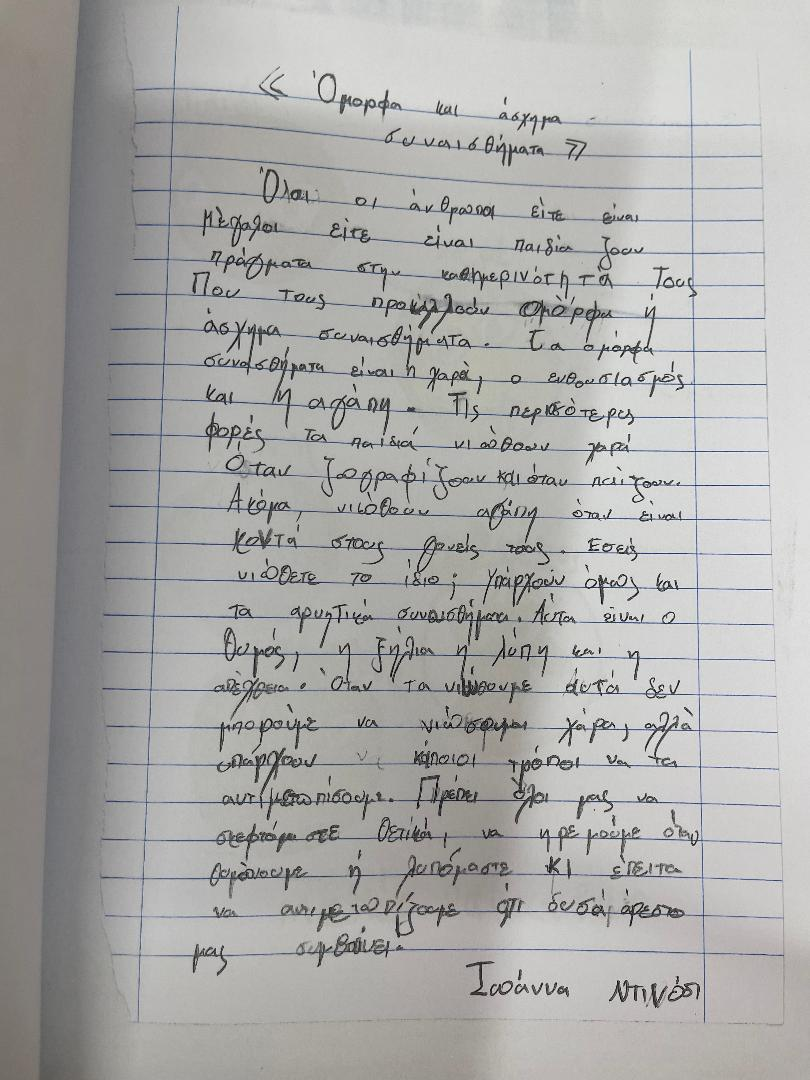 « Όμορφα και άσχημα
συναισθήματα »
Όλοι οι άνθρωποι είτε είναι
μεγάλοι είτε είναι παιδία ζουν
πράγματα στην καθημερινότητά τους
Που τους προκαλλούν ομόρφα ή
άσχημα συναισθήματα. Τα ομόρφα
συναισθήματα είναι η χαρά, ο ενθουσιασμός
και Η αγάπη. Τις περισότερες
φορές τα παιδιά νιώθουν χαρά
Όταν ζογραφίζουν και όταν παίζουν.
Ακόμα, νιώθουν αγάπη όταν είναι
κοντά στους γονείς τους. Εσείς
νιώθετε το ίδιο; Υπάρχουν όμως και
τα αρνητικά συναισθήματα. Αυτά είναι ο
θυμός, η ζήλια η λύπη και η
απέχθεια. Όταν τα νιώθουμε αυτά δεν
μπορούμε να νιώσουμε χάρα, αλλά
υπάρχουν κάποιοι τρόποι να τα
αντιμετωπίσουμε. Πρέπει όλοι μας να
σκεφτόμαστε θετικά, να ηρεμούμε όταν
θυμόνουμε ή λυπόμαστε ΚΙ έπειτα
να αντιμετοπίζουμε ότι δυσάρεστο
μας συμβαίνει.
Ιωάννα